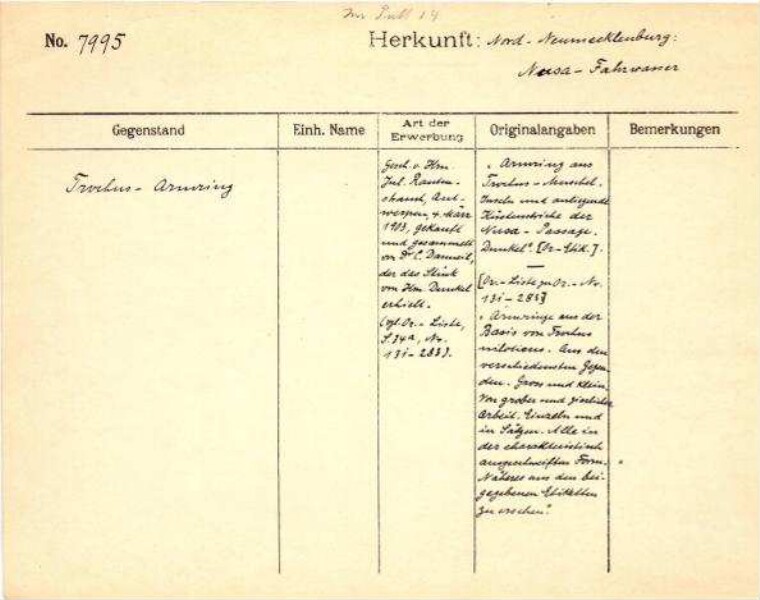 No. 7995
Herkunft: Nord-Neumecklenburg:
Nusa-Fahrwasser
Gegenstand
Einh. Name
Art der
Erwerbung
Originalangaben
Bemerkungen
Trochus-Armring
Gesch. v. Hrn.
Jul. Rauten-
strauch, Ant-
werpen, 4. März
1913, gekauft
und gesammelt
von Dr. C. Danneil,
der das Stück
von Hrn. Dunkel
erhielt.
(vgl. Or.-Liste,
S. 34a, No.
131-283).
"Armring aus
Trochus-Muschel.
Inseln und anliegende
Küstenstriche der
Nusa-Passage.
Dunkel". [Or-Etik.].
[Or.-Liste zu Or.-No.
131-283]
"Armringe aus der
Basis von Trochus
niloticus. Aus den
verschiedensten Gegen-
den. Gross und klein.
Von grober und zierlicher
Arbeit. Einzeln und
in Sätzen. Alle in
der charakteristisch
ausgeschweiften Form.
Näheres aus den bei-
gegebenen Etiketten
zu ersehen".